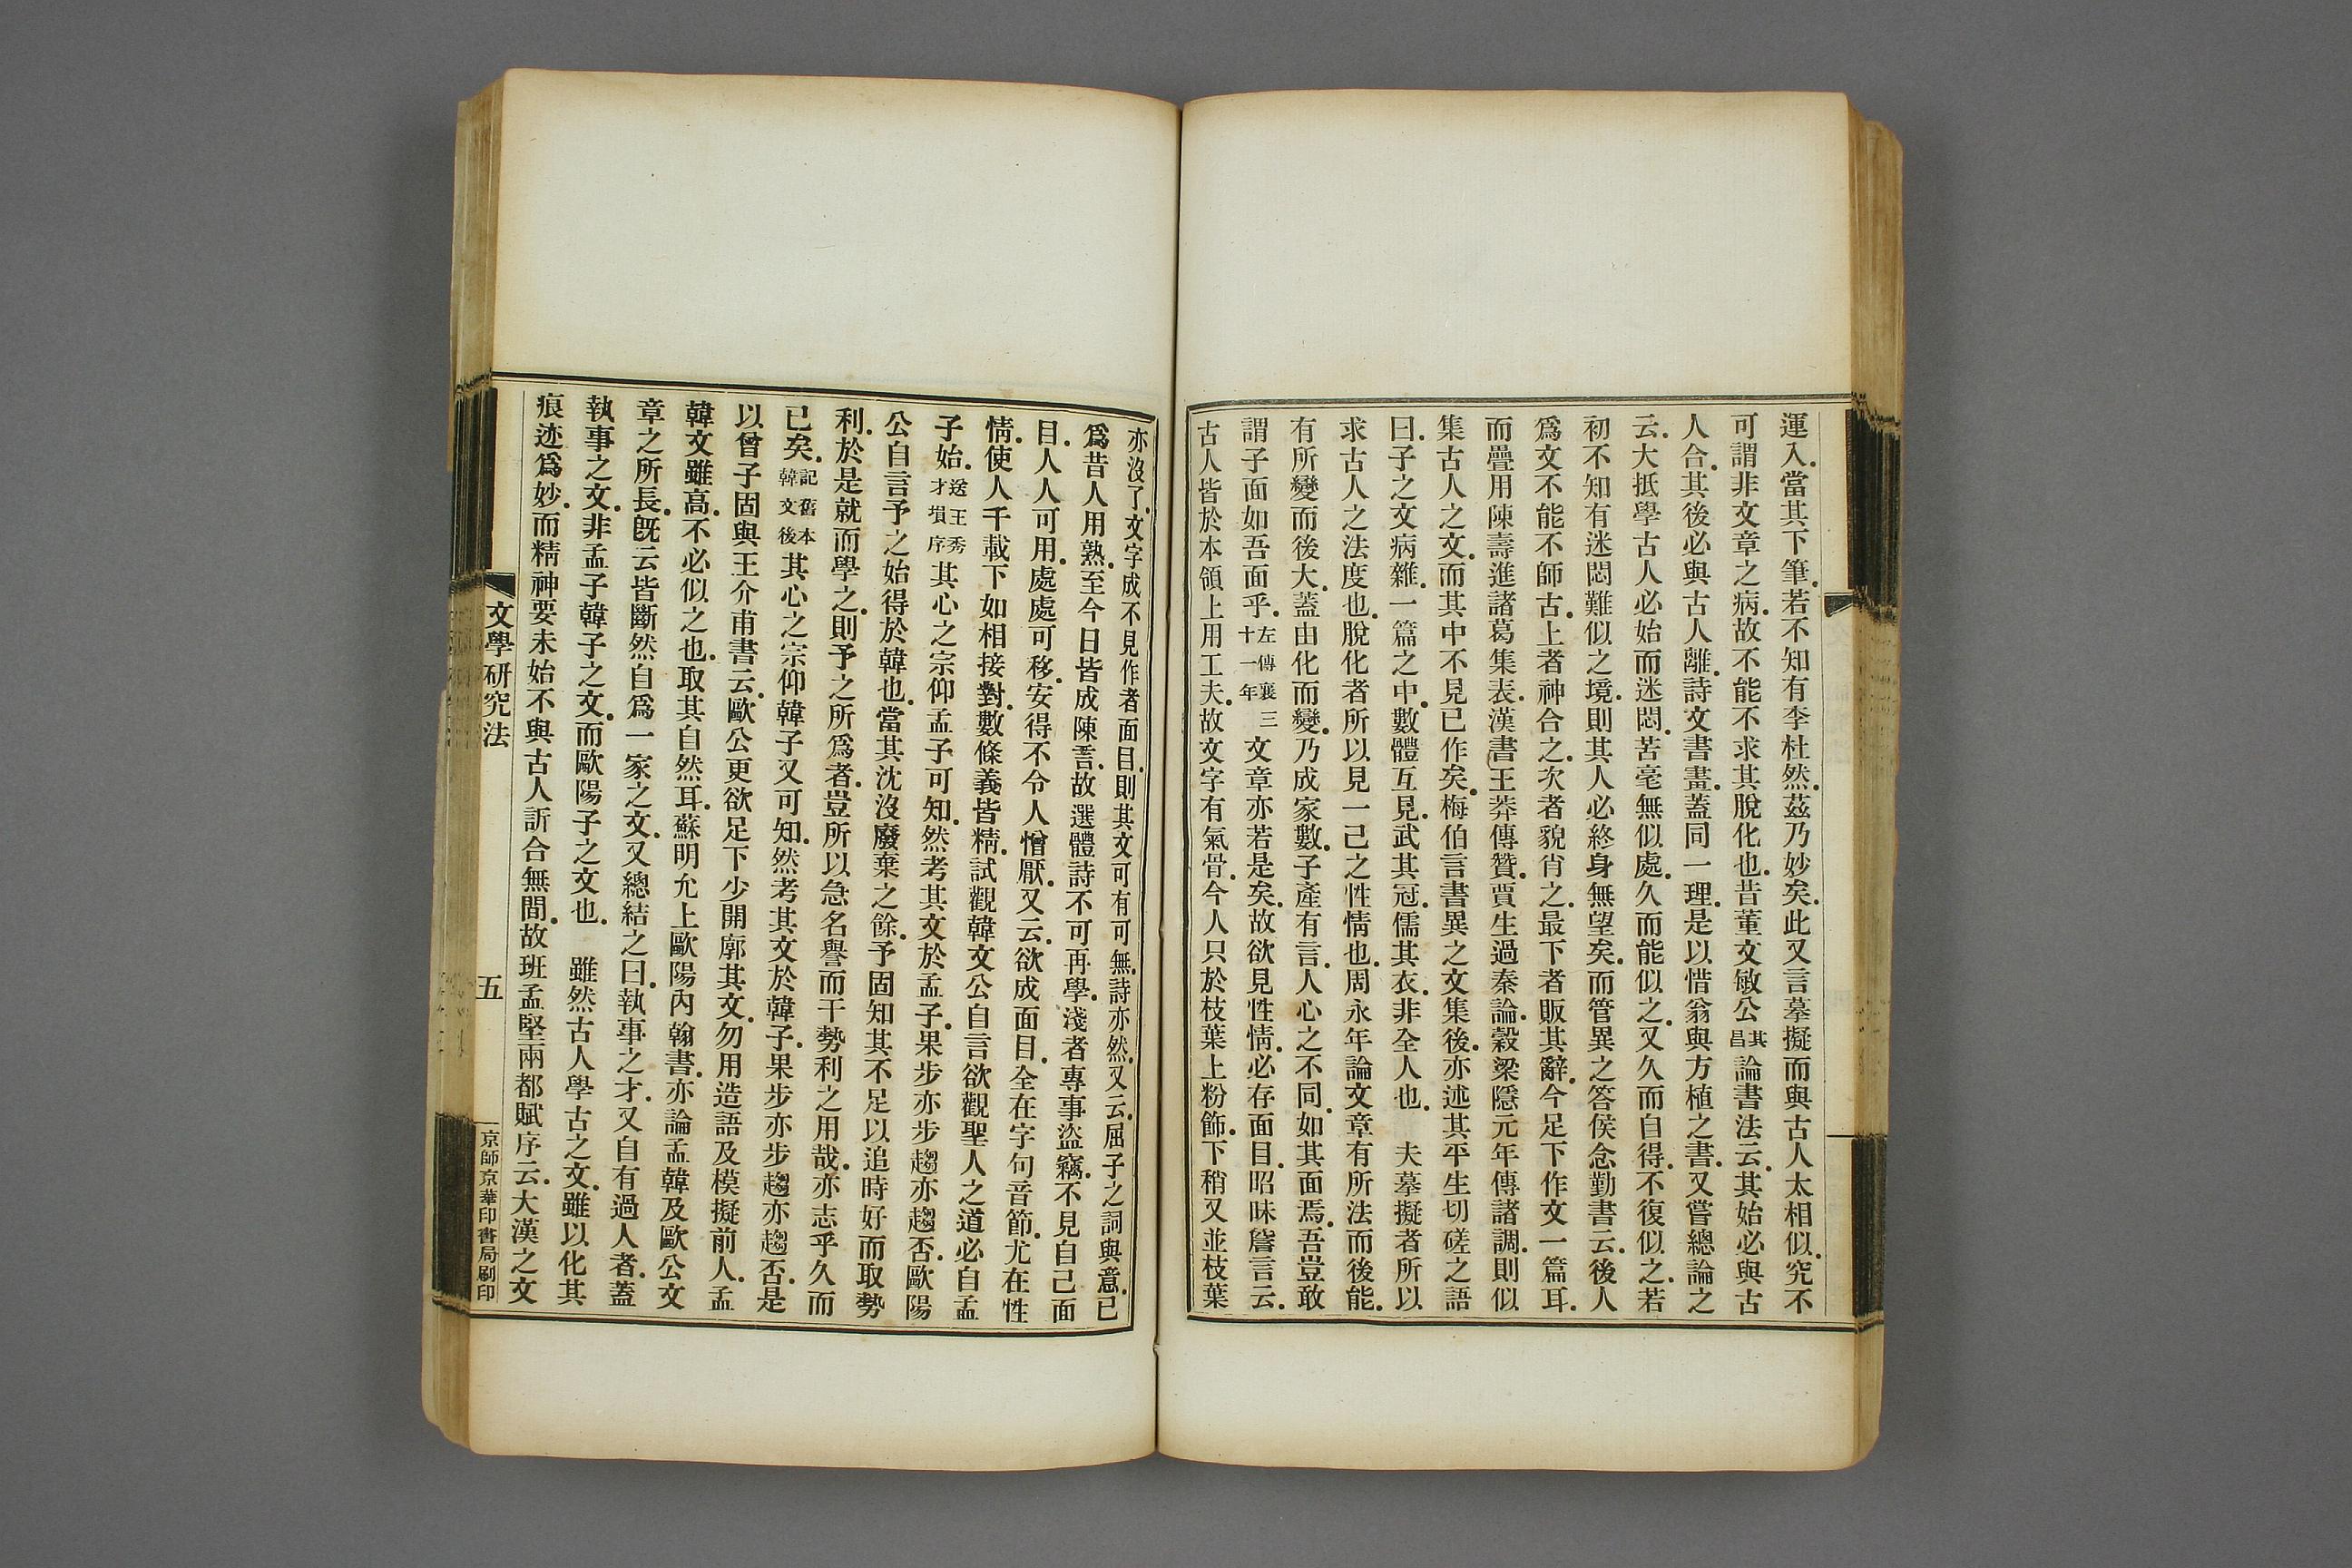 運入當其下筆若不知有李杜然茲乃妙矣此又言摹擬而與古人太相似究不
可謂非文章之病故不能不求其脫化也昔董文敏公其昌論書法云其始必與古
人合其後必與古人離詩文書畫蓋同一理是以惜翁與方植之書又嘗總論之
云大抵學古人必始而迷悶苦毫無似處久而能似之又久而自得不復似之若
初不知有迷悶難似之境則其人必終身無望矣而管異之答侯念勤書云後人
爲文不能不師古上者神合之次者貌肖之最下者販其辭今足下作文一篇耳
而疊用陳壽進諸葛集表漢書王莽傳贊賈生過秦論穀梁隱元年傳諸調則似
集古人之文而其中不見已作矣梅伯言書異之文集後亦述其平生切磋之語
曰子之文病雜一篇之中數體互見武其冠儒其衣非全人也　夫摹擬者所以
求古人之法度也脫化者所以見一己之性情也周永年論文章有所法而後能
有所變而後大蓋由化而變乃成家數子產有言人心之不同如其面焉吾豈敢
謂子面如吾面乎左傳襄三十一年文章亦若是矣故欲見性情必存面目昭昧詹言云
古人皆於本領上用工夫故文字有氣骨今人只於枝葉上粉飾下稍又並枝葉
亦沒了文字成不見作者面目則其文可有可無詩亦然又云屈子之詞與意已
爲昔人用熟至今日皆成陳言故選體詩不可再學淺者專事盜竊不見自己面
目人人可用處處可移安得不令人憎厭又云欲成面目全在字句音節尤在性
情使人千載下如相接對數條義皆精試觀韓文公自言欲觀聖人之道必自孟
子始送王秀才塤序其心之宗仰孟子可知然考其文於孟子果步亦步趨亦趨否歐陽
公自言予之始得於韓也當其沈沒廢棄之餘予固知其不足以追時好而取勢
利於是就而學之則予之所爲者豈所以急名譽而干勢利之用哉亦志乎久而
已矣記舊本韓文後其心之宗仰韓子又可知然考其文於韓子果步亦步趨亦趨否是
以曾子固與王介甫書云歐公更欲足下少開廓其文勿用造語及模擬前人孟
韓文雖高不必似之也取其自然耳蘇明允上歐陽內翰書亦論孟韓及歐公文
章之所長旣云皆斷然自爲一家之文又總結之曰執事之才又自有過人者蓋
執事之文非孟子韓子之文而歐陽子之文也　雖然古人學古之文雖以化其
痕迹爲妙而精神要未始不與古人訢合無間故班孟堅兩都賦序云大漢之文
文學研究法
五
京師京華印書局刷印